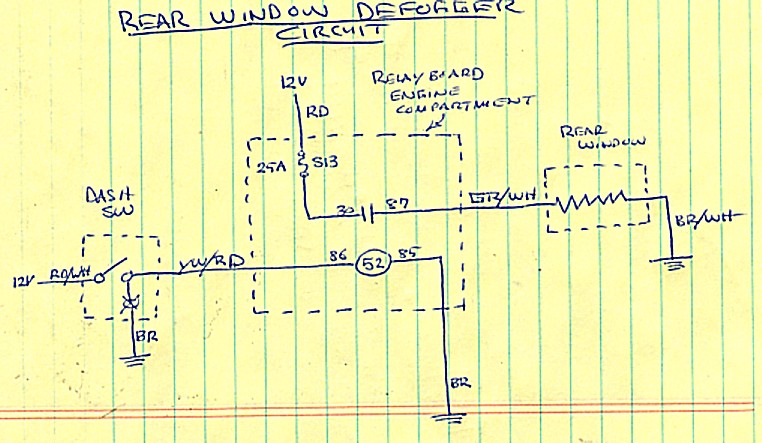 REAR WINDOW DEFOGGER
CIRCUIT
12V
RELAY BOARD
ENGINE
COMPARTMENT
RD
25A
S13
REAR
WINDOW
DASH
SW
30
87
GR/WH
BR/WH
12V
RD/WH
YW/RD
86
52
85
BR
BR